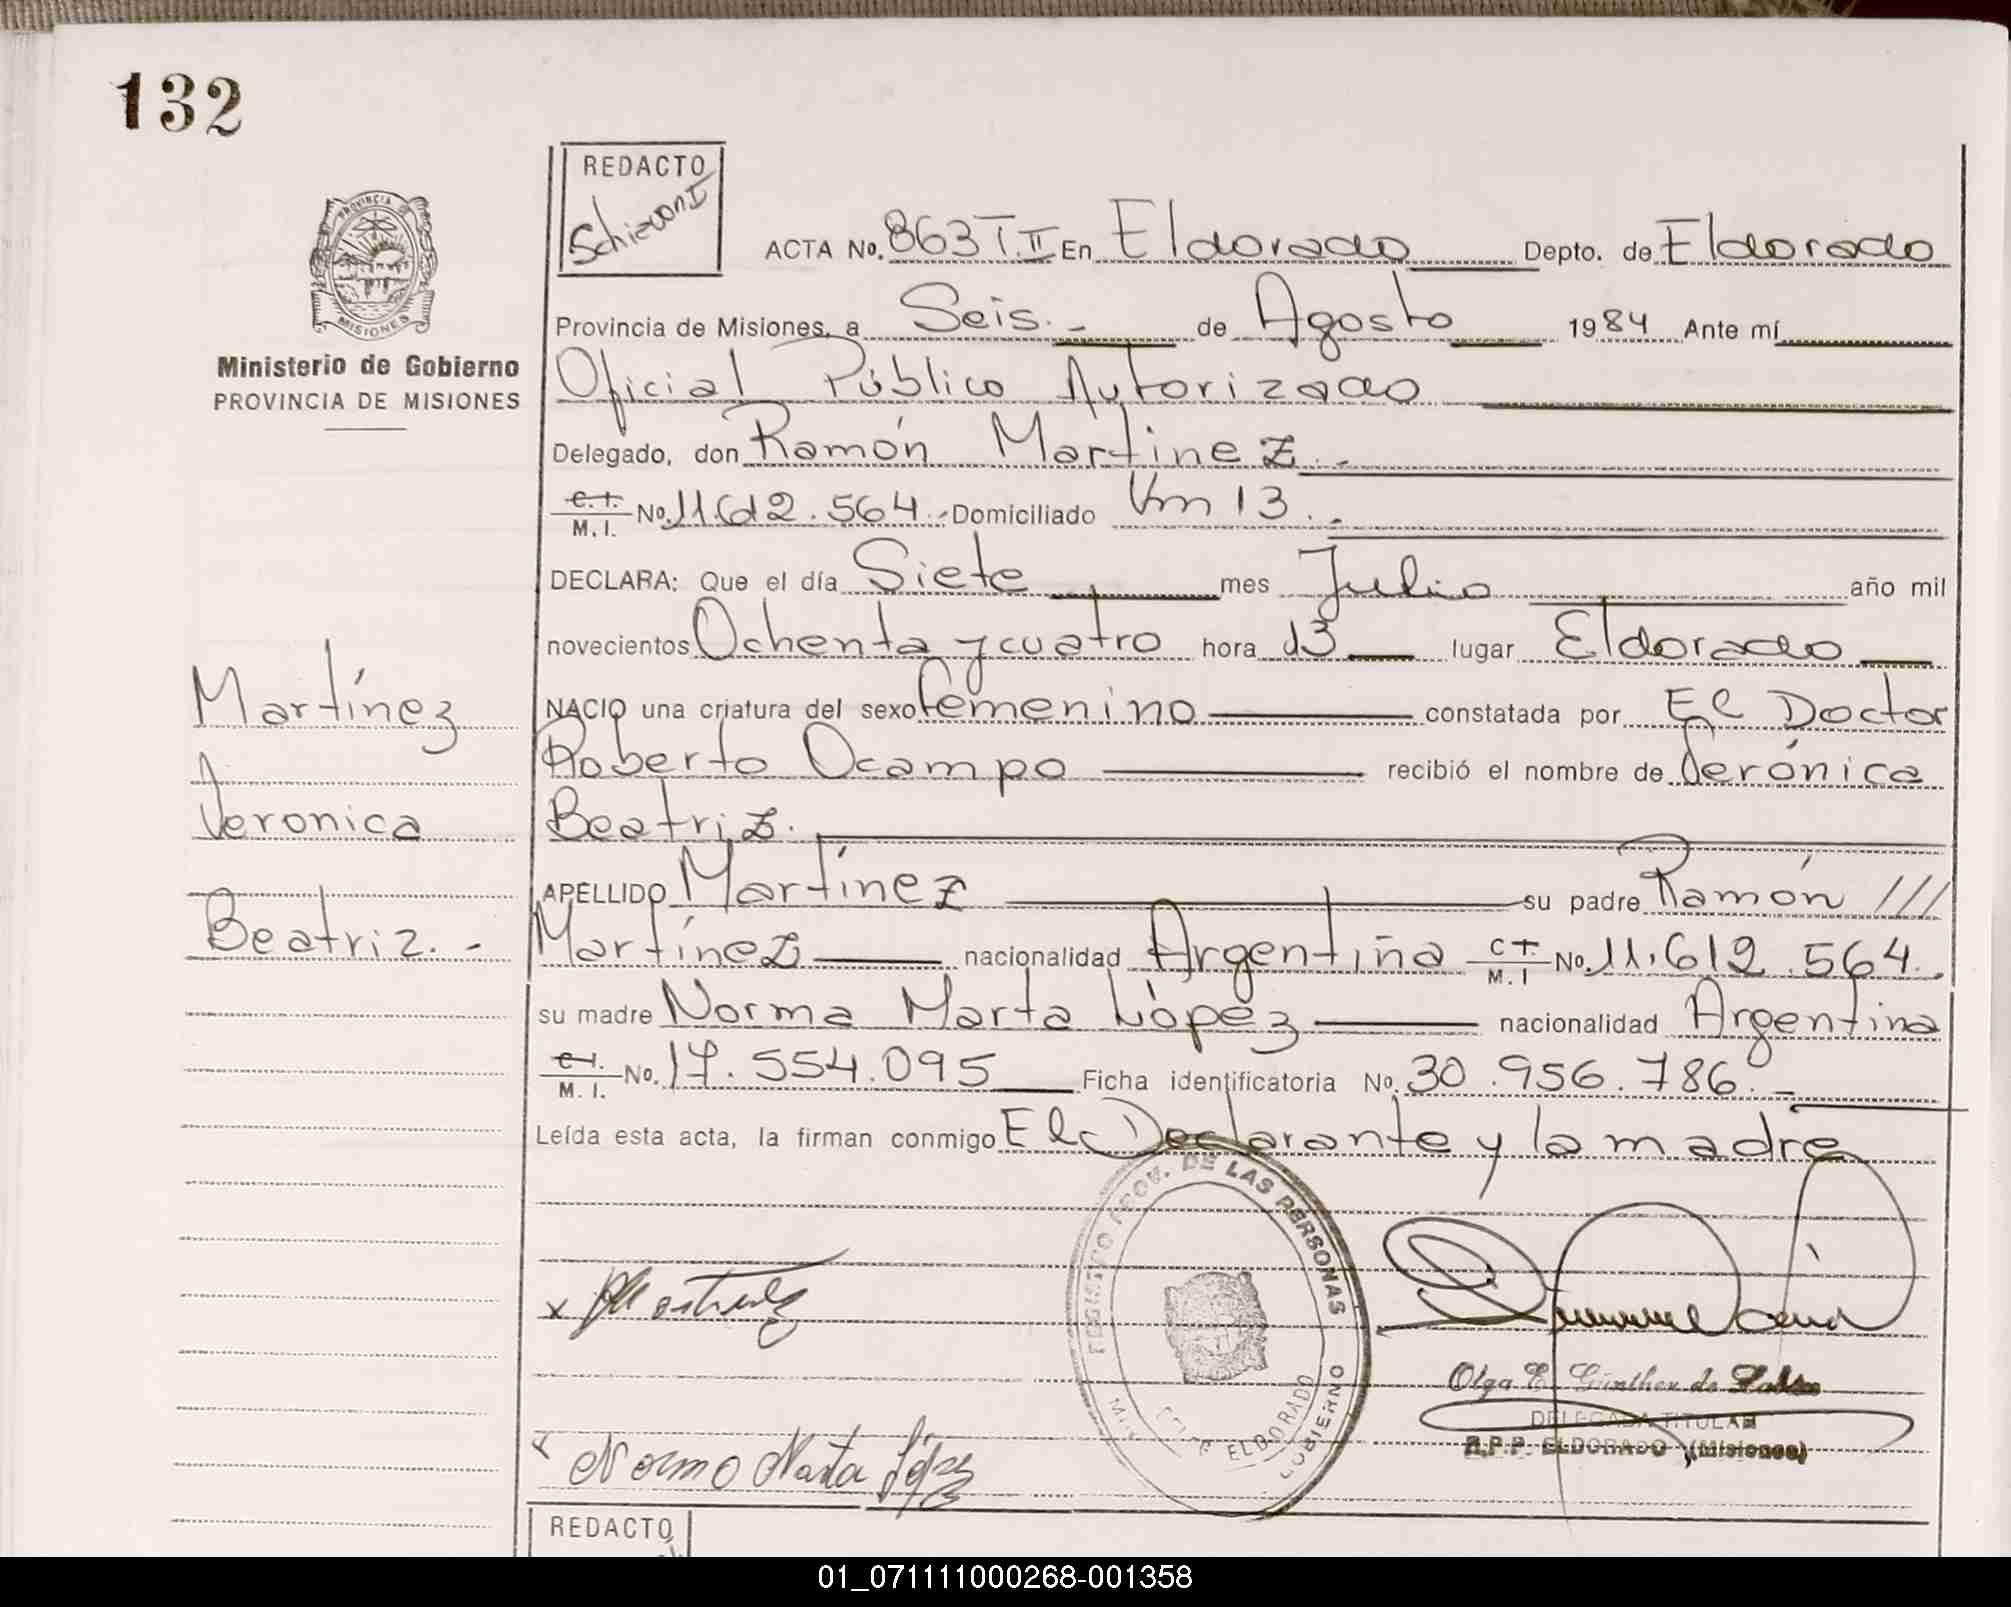 132
REDACTO
PROVINCIA
MISIONES
Ministerio de Gobierno
PROVINCIA DE MISIONES
ACTA No. 863 T. II En Eldorado Depto. de Eldorado
Provincia de Misiones, a Seis.- de Agosto 1984 Ante mí
Oficial Público Autorizado
Delegado, don Ramón Martinez.-
C.I. M.I. No. 11.612.564.- Domiciliado Km 13.-
DECLARA: Que el día Siete mes Julio año mil
novecientos Ochenta y cuatro hora 13 lugar Eldorado
NACIO una criatura del sexo femenino constatada por El Doctor
Roberto Ocampo recibió el nombre de Verónica
Beatriz.
APELLIDO Martínez su padre Ramón ///
Martínez nacionalidad Argentina C.I. M.I No. 11.612.564.
su madre Norma Marta López nacionalidad Argentina
C.I. M.I. No. 17.554.095 Ficha identificatoria No. 30.956.786.-
Leída esta acta, la firman conmigo El Declarante y la madre
Martínez
Veronica
Beatriz.-
REGISTRO PROV. DE LAS PERSONAS
ELDORADO
GOBIERNO
Olga E. Günther de
DELEGADA TITULAR
R.P.P. ELDORADO (Misiones)
x Norma Marta López
REDACTO
01_071111000268-001358